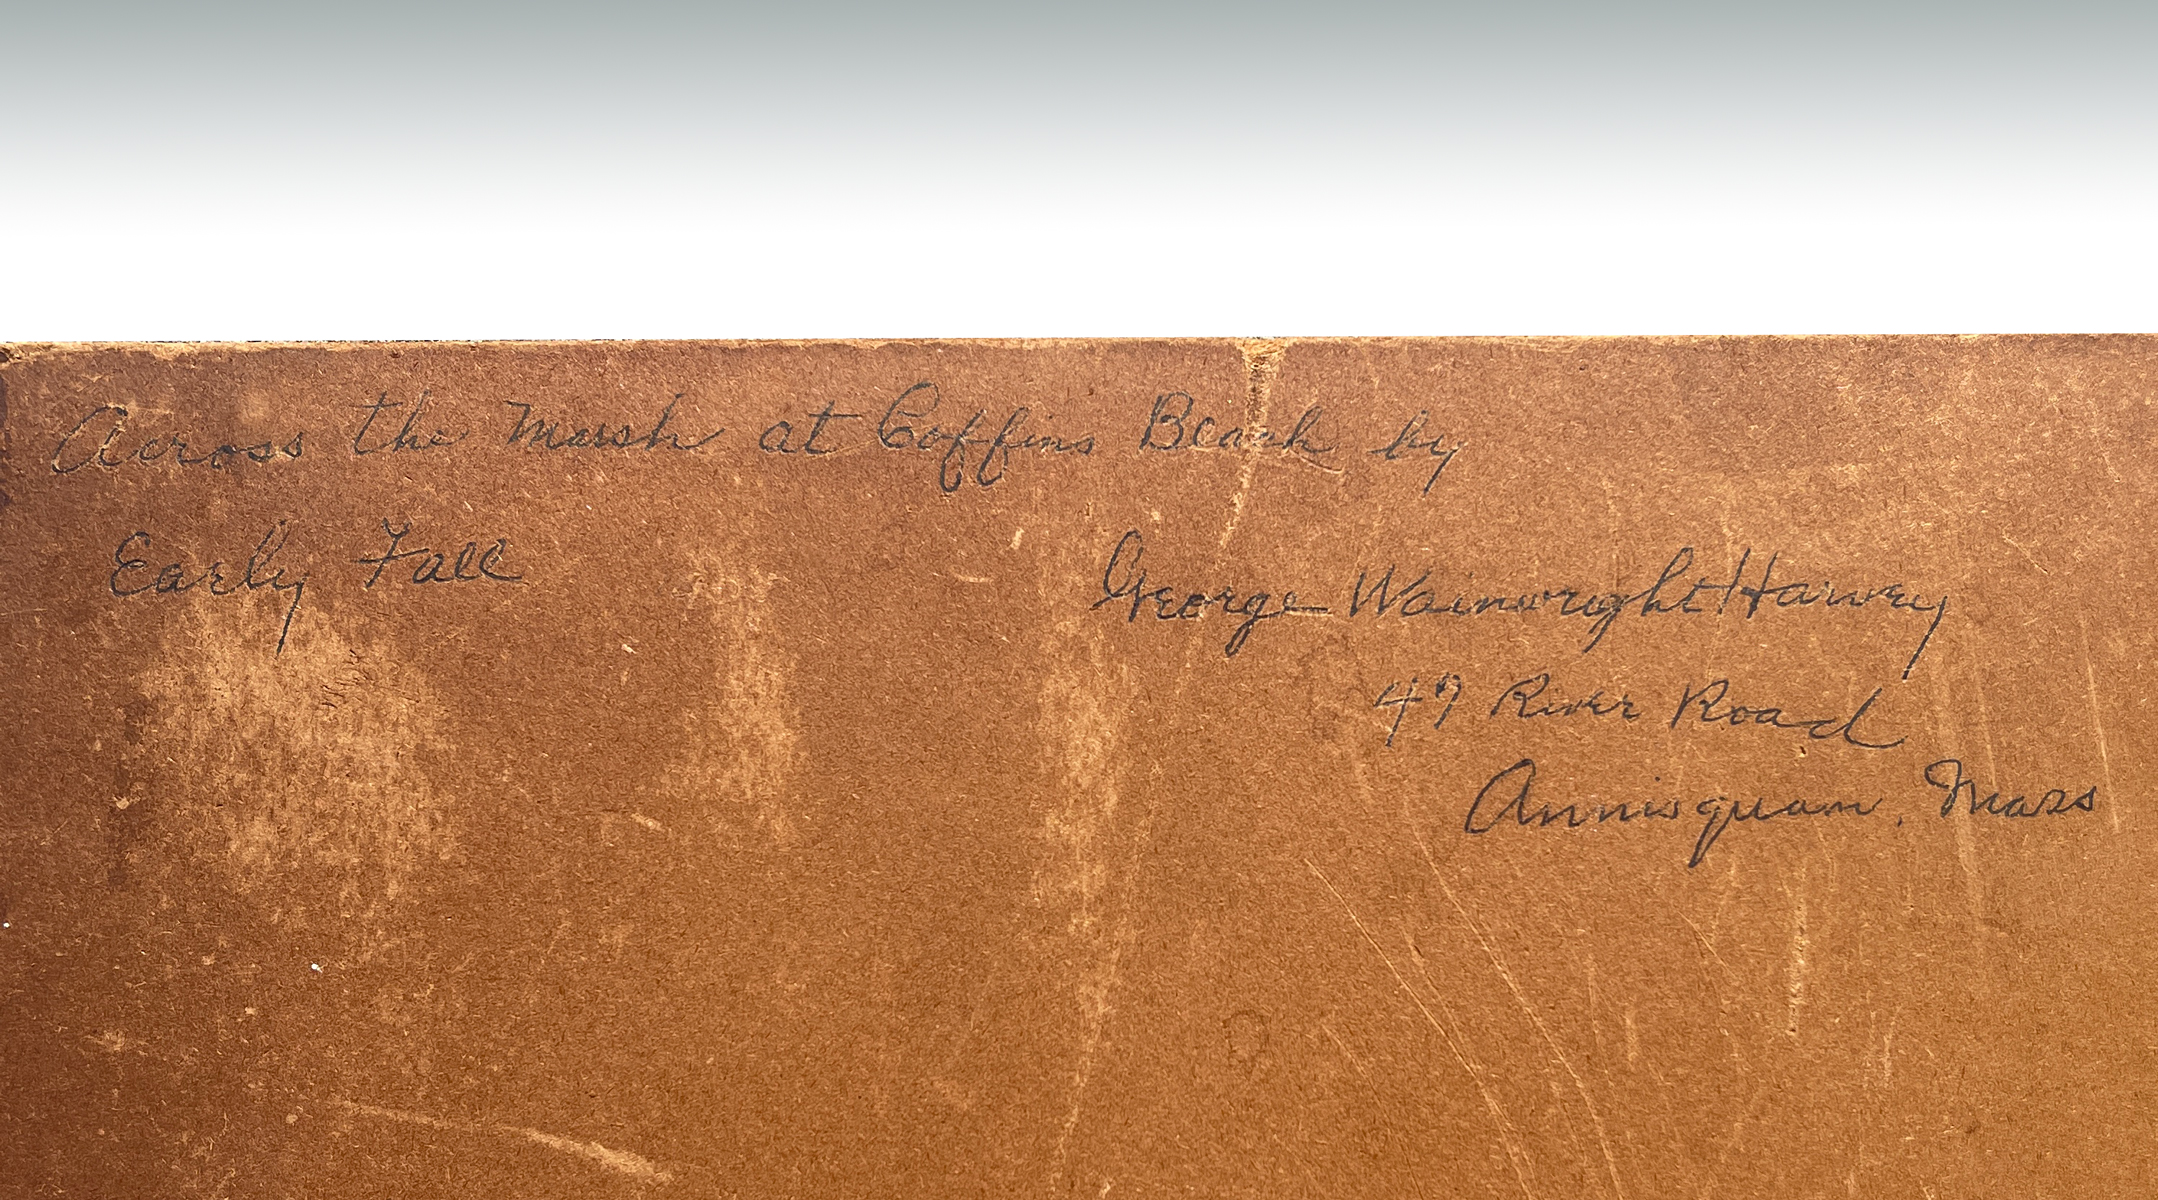 Across the Marsh at Coffins Beach by
Early Fall
George Wainwright Harvey
49 River Road
Annisquam, Mass